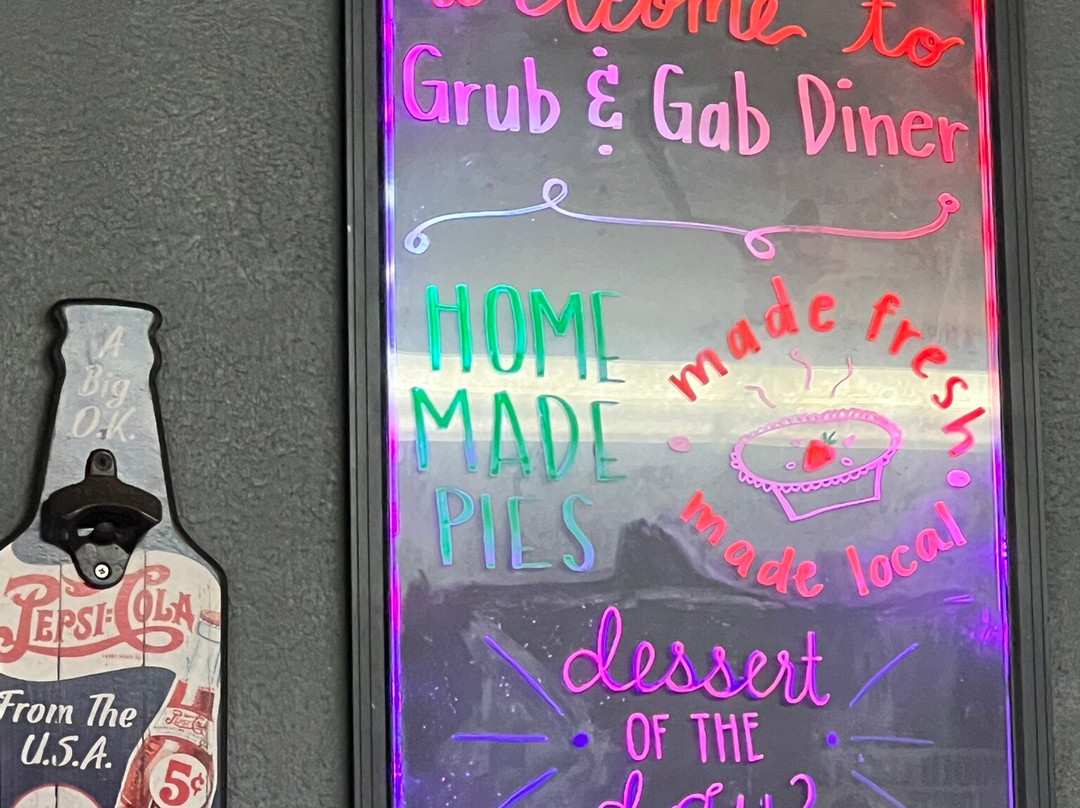 welcome to
Grub & Gab Diner
HOME
MADE
PIES
made fresh
made local
dessert
OF THE
day?
A
Big
O.K.
PEPSI-COLA
From The
U.S.A.
5¢